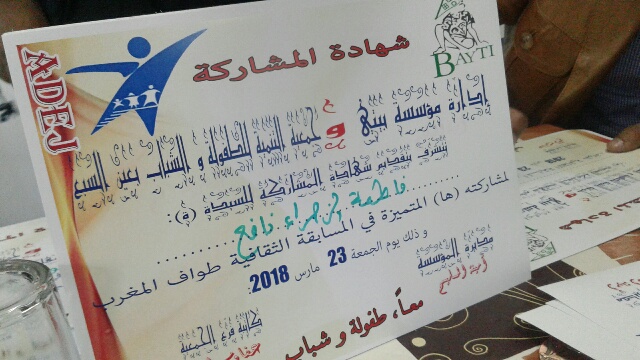 شهادة المشاركة
BAYTI
ADEJ
إدارة مؤسسة بيتي و جمعية التنمية للطفولة و الشباب بعين السبع
تتشرف بتقديم شهادة المشاركة للسيدة (ة):
فاطمة الزهراء نافع
لمشاركته (ها) المتميزة في المسابقة الثقافية طواف المغرب
و ذلك يوم الجمعة 23 مارس 2018.
مديرة المؤسسة
كاتبة فرع الجمعية
معاً، طفولة و شباب